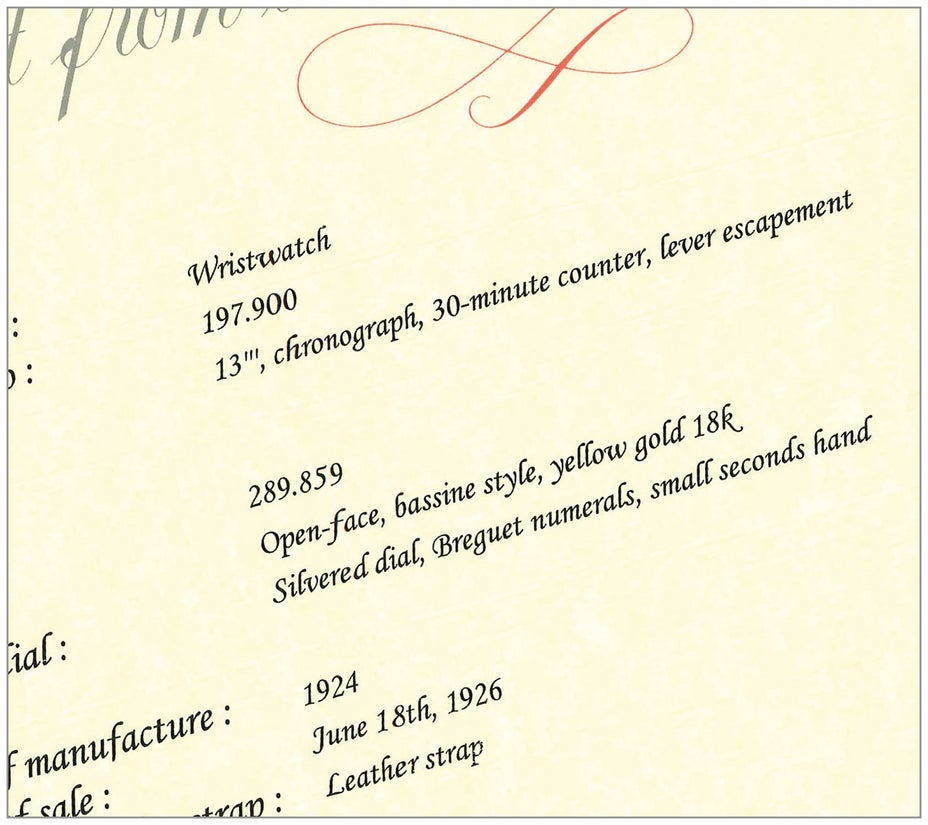 t from
Wristwatch
: 197.900
: 13''', chronograph, 30-minute counter, lever escapement
289.859
Open-face, bassine style, yellow gold 18k
Silvered dial, Breguet numerals, small seconds hand
ial :
f manufacture : 1924
f sale : June 18th, 1926
strap : Leather strap